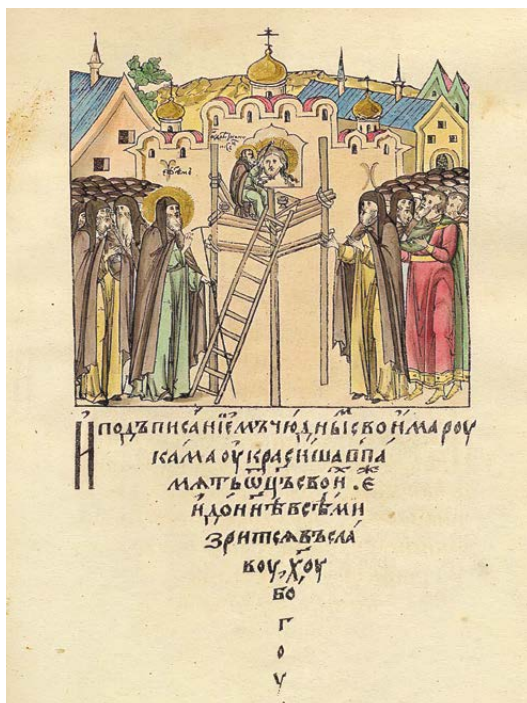 И҆подъписа́нїемъ чю́дныⷨ свои́ма роу
кама оу҆краси́ша в па́
мѧть ѿц҃ъ свои́ⷯ . єⷤ
и҆до нн҃ѣ всѣ́ми
зритсѧ въ сла
воу, х҃оу
бо́
г
о
у